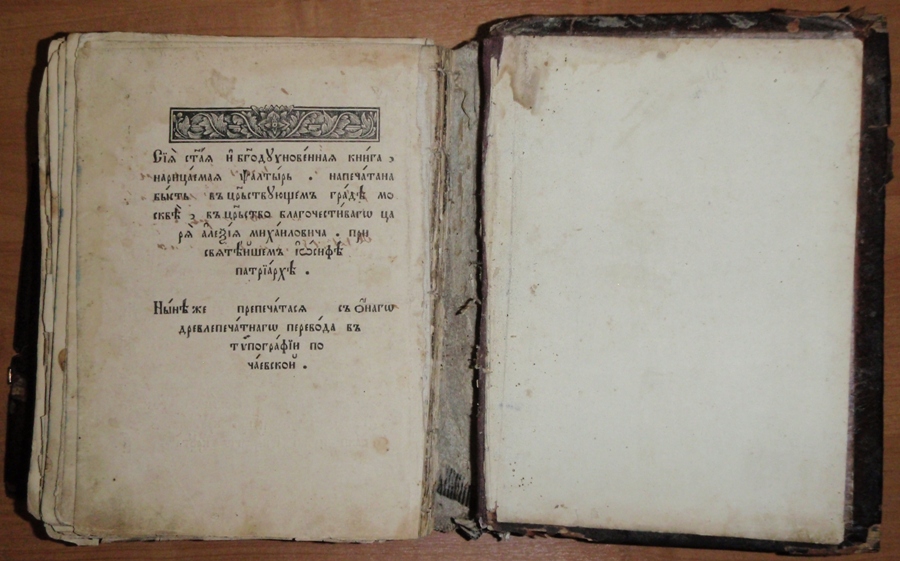 Сїѧ̀ ст҃аѧ и҆ бг҃одꙋхнове́ннаѧ кни́га ,
нарица́емаѧ ѱалты́рь . напеча́тана
бы́сть въ цр҃ьствꙋющемъ гра́дѣ мо
сквѣ̀ , въ цр҃ьство благочести́вагѡ ца
рѧ̀ а҆леѯі́ѧ миха́иловича . при
свѧтѣ́йшемъ і҆ѡ́сифѣ
патрїа́рхѣ .
Ны́нѣ же препеча́тасѧ съ ѻ҆́нагѡ
древлепеча́тнагѡ перево́да въ
тѷпогра́фїи по
ча́евской .